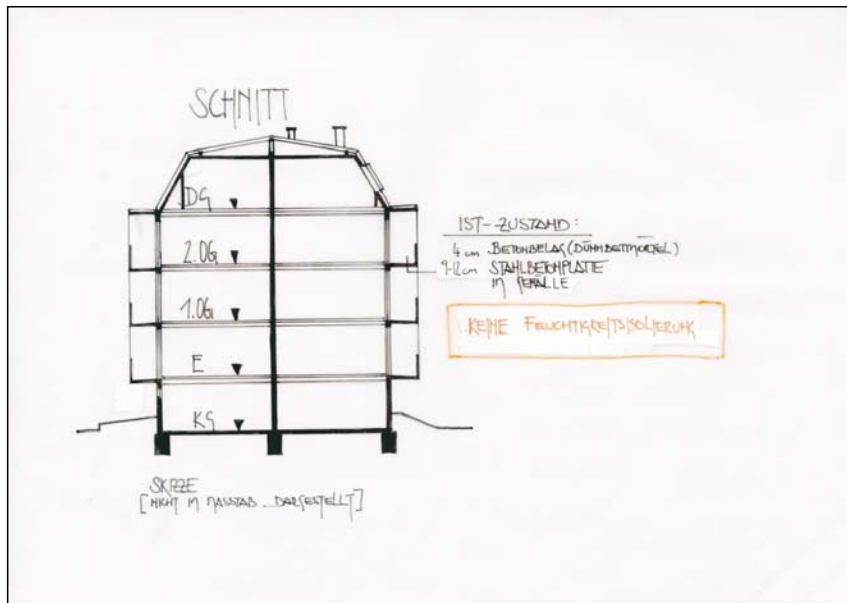 SCHNITT
DG
2.OG
1.OG
E
KG
IST-ZUSTAND:
4 cm BETONBELAG (DÜNNBETTMÖRTEL)
9-12 cm STAHLBETONPLATTE
IN GEFÄLLE
KEINE FEUCHTIGKEITSISOLIERUNG
SKIZZE
[NICHT IN MASSTAB DARGESTELLT]